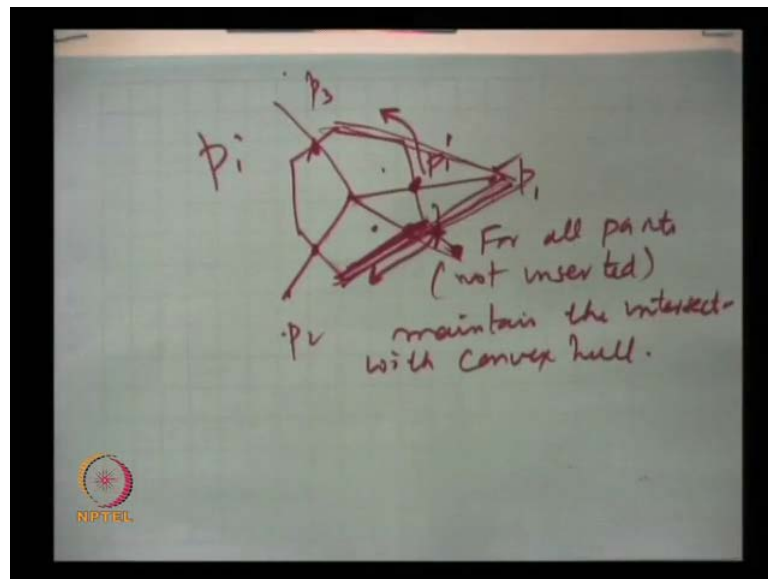 p3
pi
pi
p1
For all points
(not inserted)
maintain the intersect-
.p2
with convex hull.
NPTEL